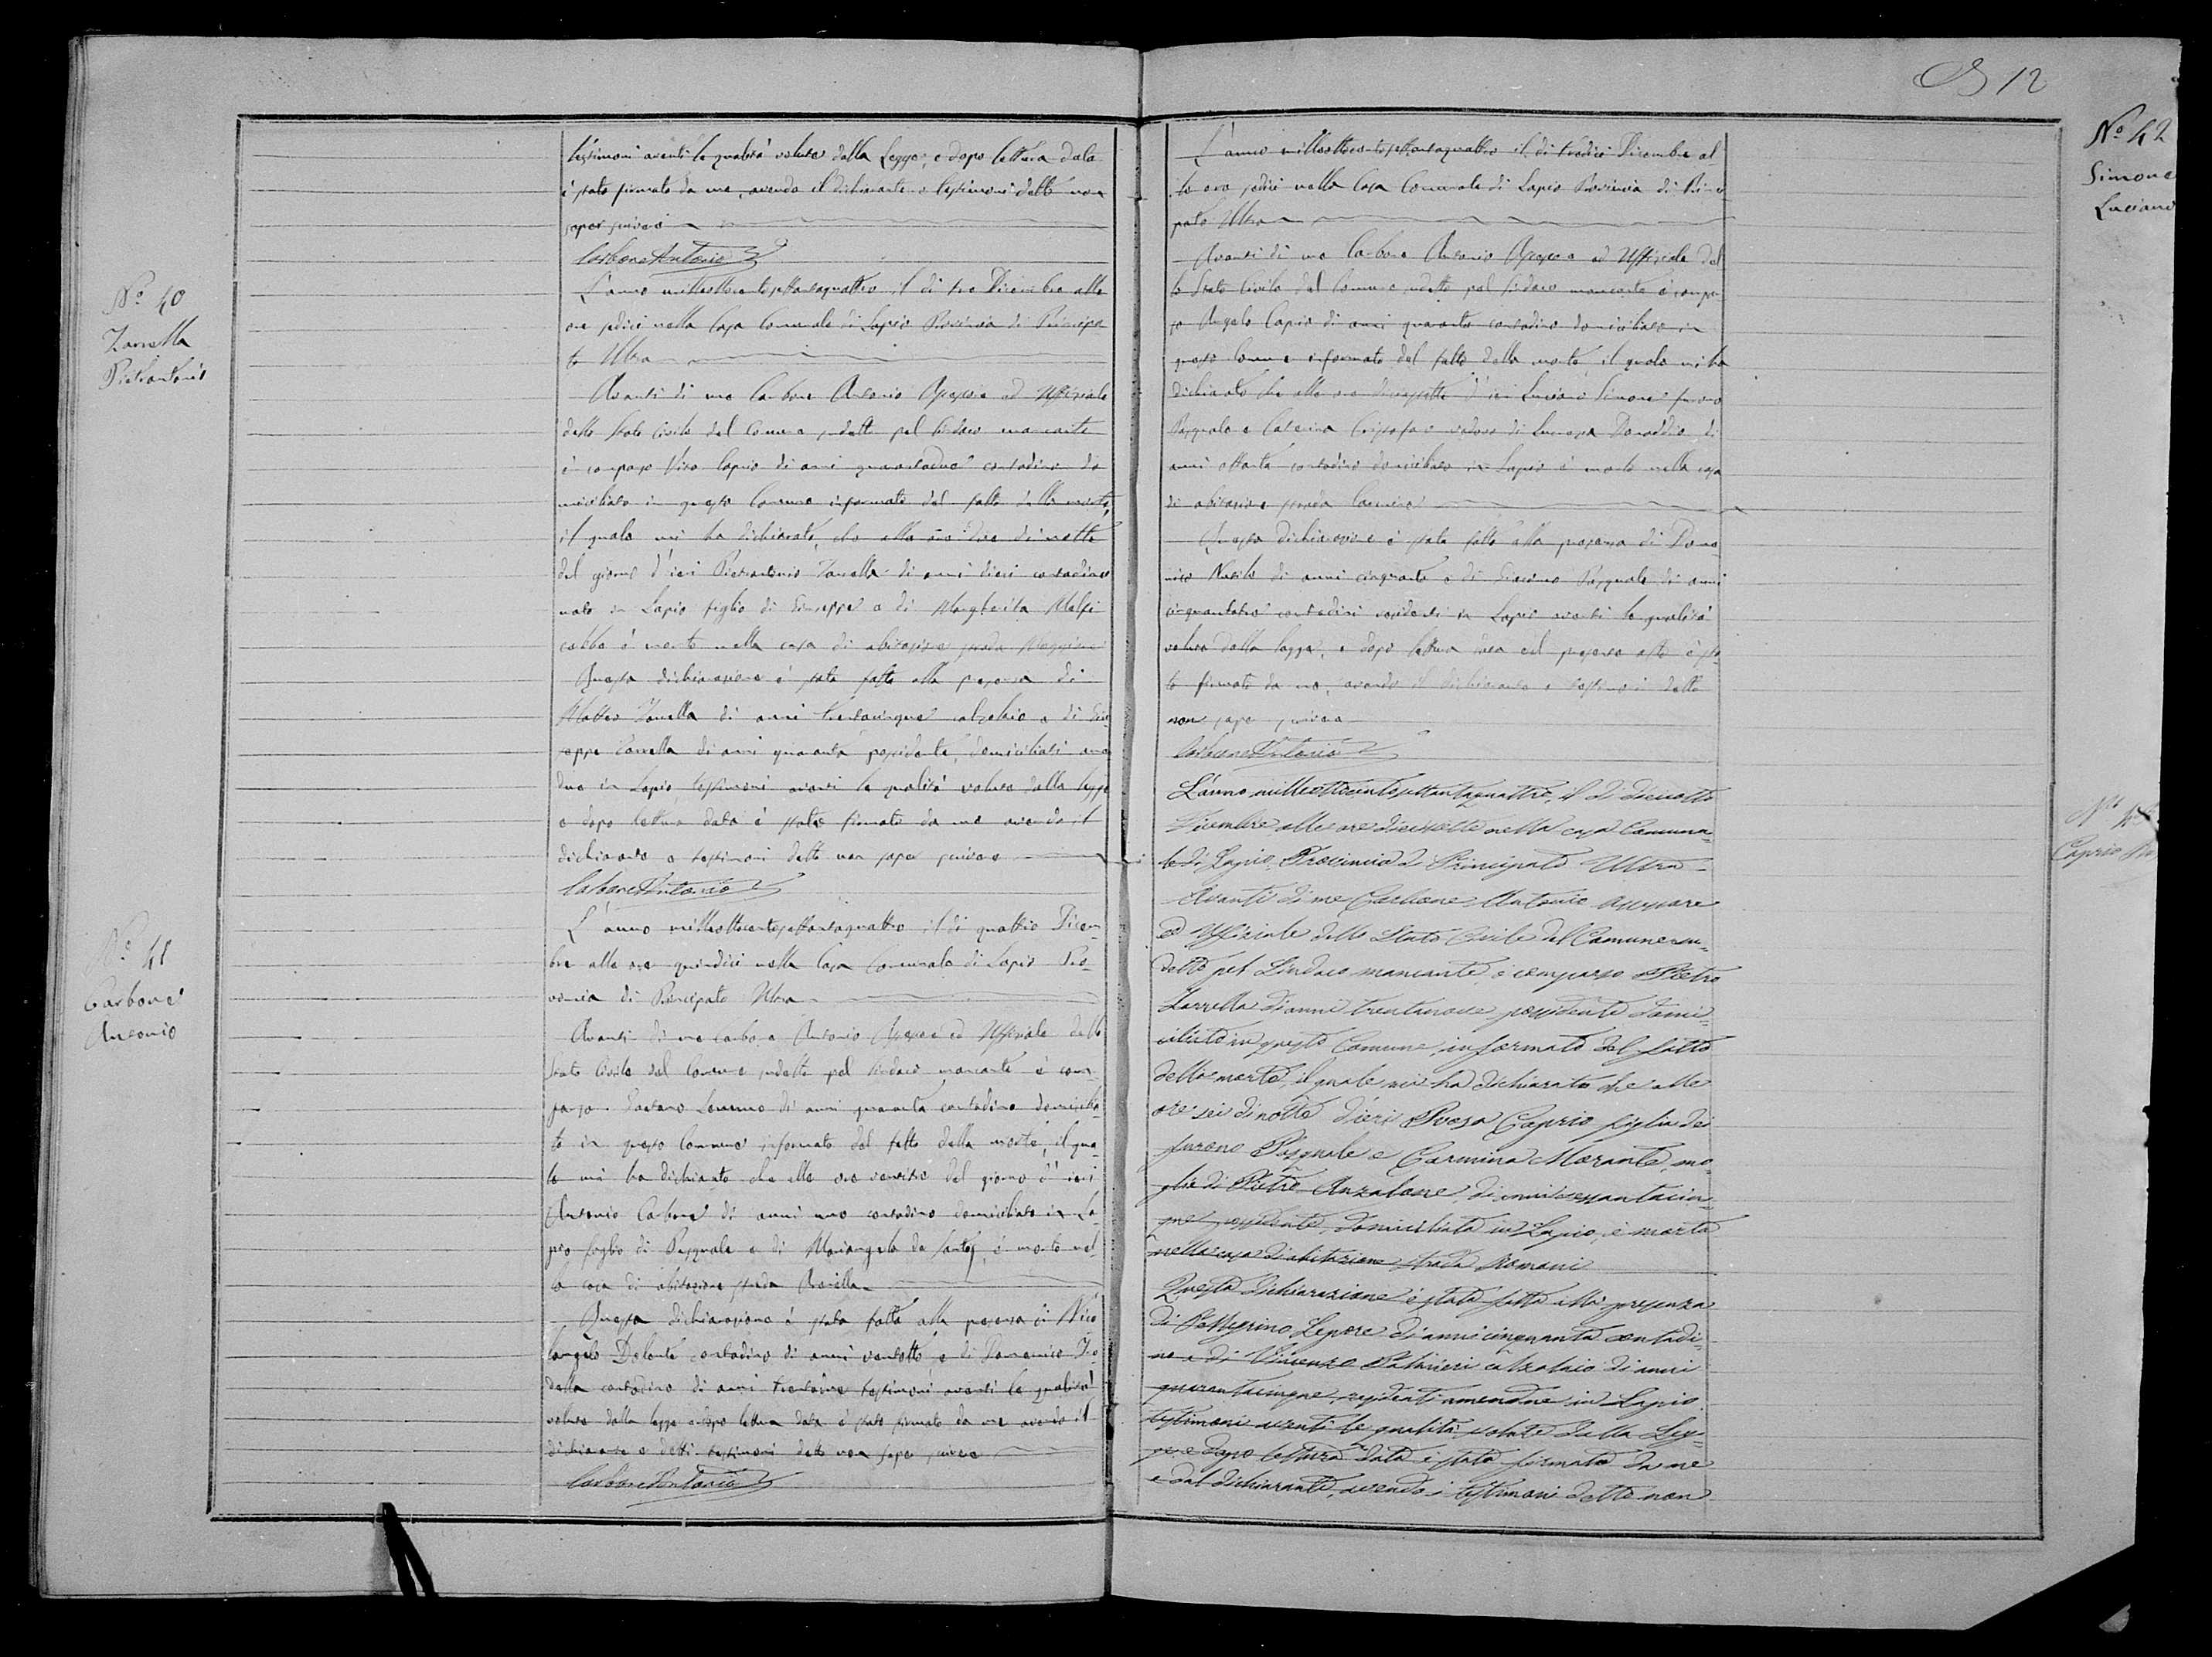 testimoni aventi le qualità volute dalla Legge, e dopo lettura data
è stato firmato da me, avendo il dichiarante e testimoni detto non
saper scrivere
Carbone Antonio
Nº 40
Zarrella
Pietrantonio
L'anno milleottocentosettantaquattro il dì tre Dicembre alle
ore sedici nella Casa Comunale di Lapio Provincia di Principa
to Ultra
Avanti di me Carbone Antonio Assessore ed Uffiziale
dello Stato Civile del Comune sudetto pel Sindaco mancante
è comparso Vito Caprio di anni quarantadue contadino do
miciliato in questo Comune informato del fatto della morte,
il quale mi ha dichiarato, che alle ore due di notte
del giorno d'ieri Pietrantonio Zarrella di anni dieci contadino
nato in Lapio figlio di Giuseppe e di Margherita
è morto nella casa di abitazione strada
Questa dichiarazione è stata fatta alla presenza di
Matteo Zarrella di anni trentacinque calzolaio e di Giu
seppe Zarrella di anni quaranta possidente, domiciliati amen
due in Lapio, testimoni aventi le qualità volute dalla legge
e dopo lettura data è stato firmato da me avendo il
dichiarante e testimoni detto non saper scrivere
Carbone Antonio
Nº 41
Carbone
Antonio
L'anno milleottocentosettantaquattro il dì quattro Dicem
bre alle ore quindici nella Casa Comunale di Lapio Pro
vincia di Principato Ultra
Avanti di me Carbone Antonio Assessore ed Uffiziale dello
Stato Civile del Comune sudetto pel Sindaco mancante è com
parso Gaetano di anni quaranta contadino domicilia
to in questo Comune informato del fatto della morte, il qua
le mi ha dichiarato che alle ore ventitre del giorno d'ieri
Antonio Carbone di anni uno contadino domiciliato in La
pio figlio di Pasquale e di Mariangela de Santis, è morto nel
la casa di abitazione strada
Questa dichiarazione è stata fatta alla presenza di Nico
langelo Dolente contadino di anni ventotto e di Domenico
contadino di anni testimoni aventi le qualità
volute dalla legge e dopo lettura data è stato firmato da me avendo il
dichiarante e detti testimoni detto non saper scrivere
Carbone Antonio
12
Nº 42
Simone
Luciano
L'anno milleottocentosettantaquattro il dì tredici Dicembre al
le ore sedici nella Casa Comunale di Lapio Provincia di Princi
pato Ultra
Avanti di me Carbone Antonio Assessore ed Uffiziale del
lo Stato Civile del Comune sudetto pel Sindaco mancante è compar
so Angelo Caprio di anni quaranta contadino domiciliato in
questo Comune informato del fatto della morte, il quale mi ha
dichiarato che alle ore diciassette d'ieri Luciano Simone furono
Pasquale e Caterina vedovo di Lucrezia di
anni ottanta contadino domiciliato in Lapio è morto nella casa
di abitazione strada
Questa dichiarazione è stata fatta alla presenza di Dome
nico di anni cinquanta e di Pasquale di anni
cinquantatre contadini residenti in Lapio aventi le qualità
volute dalla legge, e dopo lettura data del presente atto è sta
to firmato da me, avendo il dichiarante e testimoni detto
non saper scrivere
Carbone Antonio
Caprio
L'anno milleottocentosettantaquattro, il dì diciotto
Dicembre alle ore diciassette nella casa Comuna
le di Lapio, Provincia di Principato Ultra
Avanti di me Carbone Antonio Assessore
ed Uffiziale dello Stato Civile del Comune su
detto pel Sindaco mancante, è comparso Pietro
Zarrella di anni trentanove possidente domi
ciliato in questo Comune, informato del fatto
della morte, il quale mi ha dichiarato che alle
ore sei di notte d'ieri Caprio figlia dei
furono Pasquale e Carmina Morante, mo
glie di Pietro Anzalone, di anni sessantacin
que possidente, domiciliata in Lapio, è morta
nella casa di abitazione strada Romani
Questa dichiarazione è stata fatta alla presenza
di Pellegrino Lepore di anni cinquanta contadi
no e di Vincenzo Palmieri calzolaio di anni
quarantacinque, residenti amendue in Lapio,
testimoni aventi le qualità volute dalla Leg
ge e dopo lettura data è stato firmato da me
e dal dichiarante, avendo i testimoni detto non